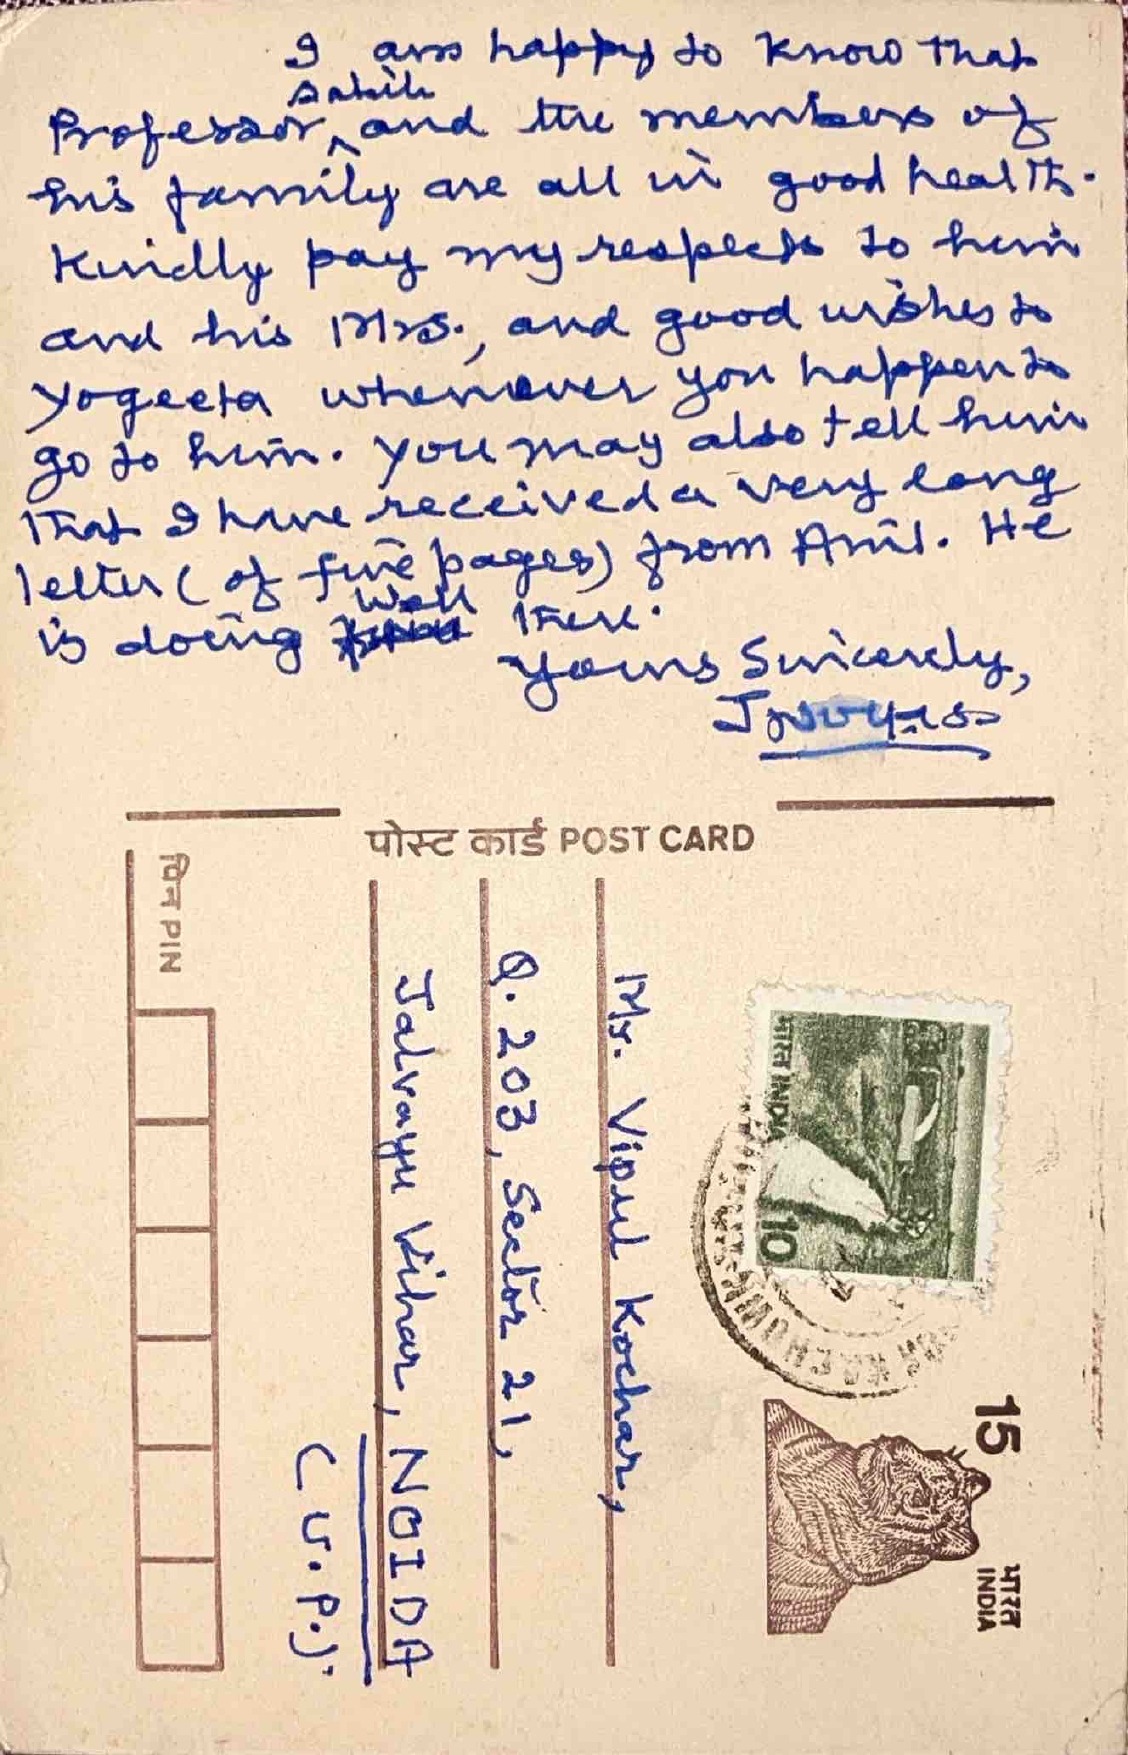 I am happy to know that
Professor sahib and the members of
his family are all in good health.
Kindly pay my respects to him
and his Mrs., and good wishes to
Yogeeta whenever you happen to
go to him. You may also tell him
that I have received a very long
letter (of five pages) from Anil. He
is doing well there.
Yours Sincerely,
पोस्ट कार्ड POST CARD
पिन PIN
Mr. Vipul Kochar,
Q. 203, Sector 21,
Jalvayu Vihar, NOIDA
(U.P.).
भारत INDIA
10
15
भारत
INDIA